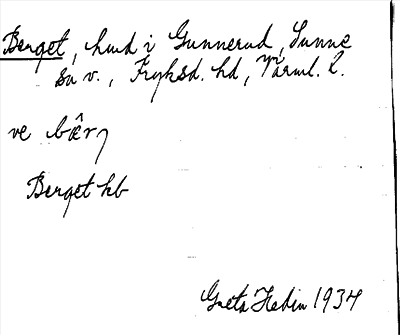 Berget, hmd i Gunnerud, Sunne
sn v., Fryksd. hd, Värml. l.
ve bœ̂rɿ
Berget kb
Greta Hedin 1934